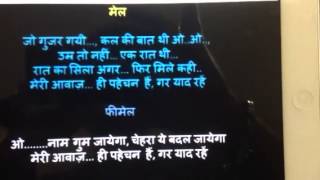 मेल
जो गुजर गयी..., कल की बात थी ओ..ओ..,
उम्र तो नहीं... एक रात थी...
रात का सिला अगर... फिर मिले कही..
मेरी आवाज़... ही पहेचन हैं, गर याद रहें
फीमेल
ओ........नाम गुम जायेगा, चेहरा ये बदल जायेगा
मेरी आवाज़... ही पहेचन हैं, गर याद रहें